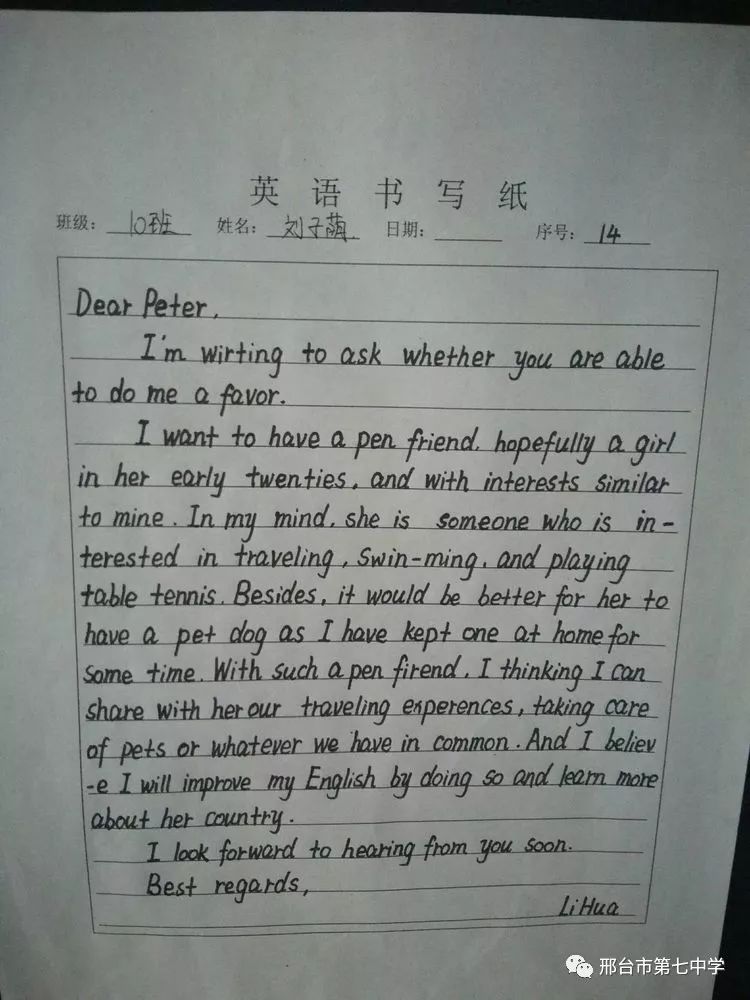 英语书写纸
班级: 10班 姓名: 刘子荫 日期: 序号: 14
Dear Peter,
I'm wirting to ask whether you are able
to do me a favor.
I want to have a pen friend. hopefully a girl
in her early twenties, and with interests similar
to mine. In my mind, she is someone who is in-
terested in traveling, swin-ming, and playing
table tennis. Besides, it would be better for her to
have a pet dog as I have kept one at home for
some time. With such a pen firend, I thinking I can
share with her our traveling experences, taking care
of pets or whatever we have in common. And I believ
-e I will improve my English by doing so and learn more
about her country.
I look forward to hearing from you soon.
Best regards,
LiHua
邢台市第七中学